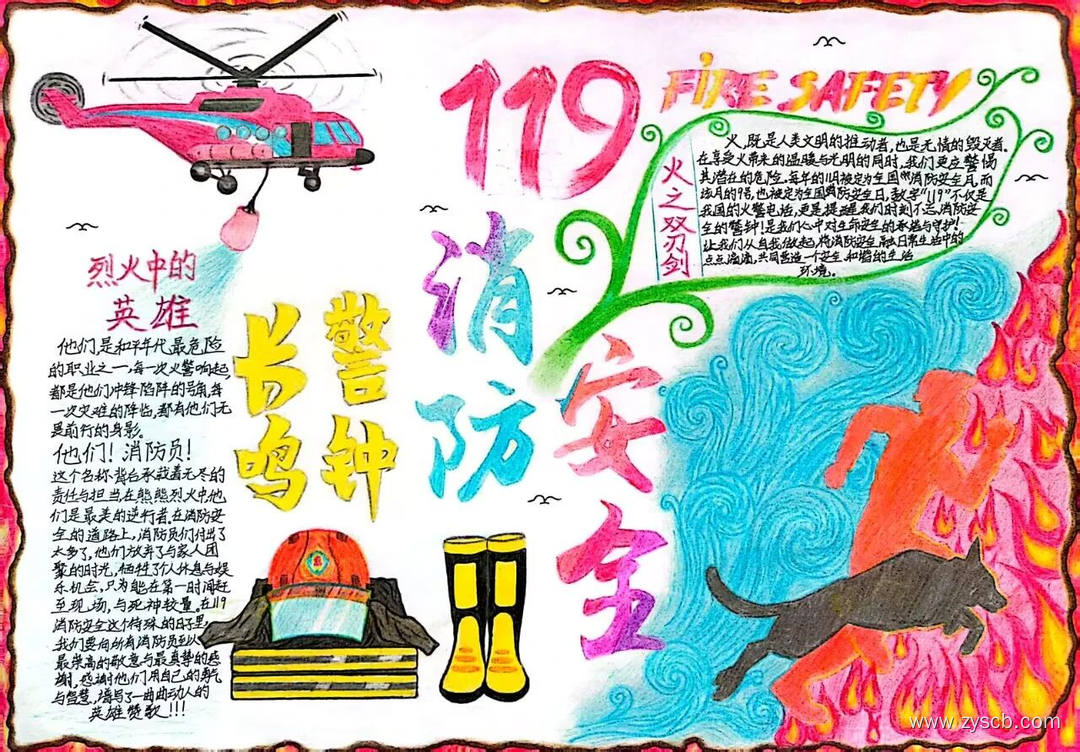 119
FIRE SAFETY
消防
安全
火之双刃剑
火,既是人类文明的推动者,也是无情的毁灭者.
在享受火带来的温暖与光明的同时,我们更应警惕
其潜在的危险.每年的11月被定为全国"消防安全月,而
该月的9号,也被定为全国消防安全日,数字"119"不仅是
我国的火警电话,更是提醒我们时刻不忘消防安
全的警钟!是我们心中对生命安全的承诺与守护!
让我们从自我做起,将消防安全融日常生活中的
点点滴滴,共同营造一个安全和谐的生活
环境。
烈火中的
英雄
他们是和平年代最危险
的职业之一,每一次火警响起,
都是他们冲锋陷阵的号角,每
一次灾难的降临,都有他们无
畏前行的身影。
他们!消防员!
这个名称背后承载着无尽的
责任与担当,在熊熊烈火中,他
们是最美的逆行者,在消防安
全的道路上,消防员们付出了
太多了,他们放弃了与家人团
聚的时光,牺牲了个人休息与娱
乐机会,只为能在第一时间赶
至现场,与死神较量。在119
消防安全这个特殊的日子里,
我们要向所有消防员致以
最崇高的敬意与最真挚的感
谢,感谢他们用自己的勇气
与智慧,谱写了一曲曲动人的
英雄赞歌!!!
警钟
长鸣
www.zyscb.com